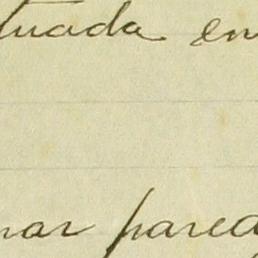 tuada en
nar pared